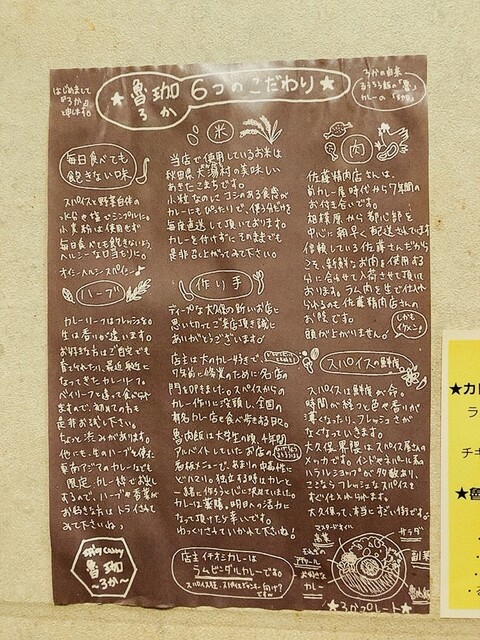 はじめまして
『ろか』と
申します。
★魯珈 6つのこだわり★
ろか
ろかの由来
るうろう飯の「魯」
カレーの「珈」
毎日食べても
飽きない味
スパイスと野菜自体の
水分と塩でシンプルに。
小麦粉は使用せず
毎日食べても飽きないよう、
ヘルシーな口当たりに。
オイシイヘルシースパイシー♪
ハーブ
カレーリーフはフレッシュを。
生は香りが違います。
お好きな方はご自宅でも
育てられたり、最近身近に
なってきたカレーリーフ。
ベイリーフと違って食べられ
ますので、初めての方も
是非お試し下さい。
ちょっと渋みがあります。
他にも、生のハーブを使った
東南アジアのカレーなども
限定カレー枠でお出し
するので、ハーブの香菜が
お好きな方はトライされて
みて下さいね♪
SPICY CURRY
魯珈
～ろか～
米
当店で使用しているお米は
秋田県大潟村の美味しい
あきたこまちです。
小粒なのにコシのある食感が
カレーにもぴったりで、使う分だけを
毎度直送して頂いております。
カレーを付けずにそのままでも
是非召し上がってみて下さい。
作り手
ディープな大久保の新しいお店に
思い切ってご来店頂き誠に
ありがとうございます。
店主は大のカレー好きで、
7年前に修業のために名店の
門を叩きました。スパイスからの
カレー作りに没頭し、全国の
有名カレー店を食べ歩きある日々。
魯肉飯は大学生の頃、4年間
アルバイトしていたお店の
看板メニューで、あまりの中毒性に
どハマりし独立する時はカレーと
一緒に作ろうと心に決めていました。
カレーは薬膳。明日への活力に
なって頂けたら幸いです。
ゆっくりされていかれて下さいね。
店主イチオシカレーは
ラムビンダルカレーです。
肉
佐藤精肉店さんは、
前カレー屋時代から7年間の
お付き合いです。
相模原から都心部を
中心に朝早く配送されています。
信頼している佐藤さんだから
こそ、新鮮なお肉を使用する
分に合せて入荷させて頂いて
おります。ラム肉を生で仕入れ
られるのも佐藤精肉店さんの
お陰です。
頭が上がりません。
しかも
イケメン!
スパイスの鮮度
スパイスは鮮度が命。
時間が経つと色や香りが
薄くなったり、フレッシュさが
なくなっていきます。
大久保界隈はスパイス屋さんの
メッカです。インドやネパール系の
ハラルショップが多数あり、
ここならフレッシュなスパイスを
すぐ仕入れられます。
大久保って、本当にすごい街です。
マスタードオイル
高菜
サラダ
副菜
お好きな
カレー
魯肉飯
★ろかプレート★
★カ
ラ
チキ
★魯